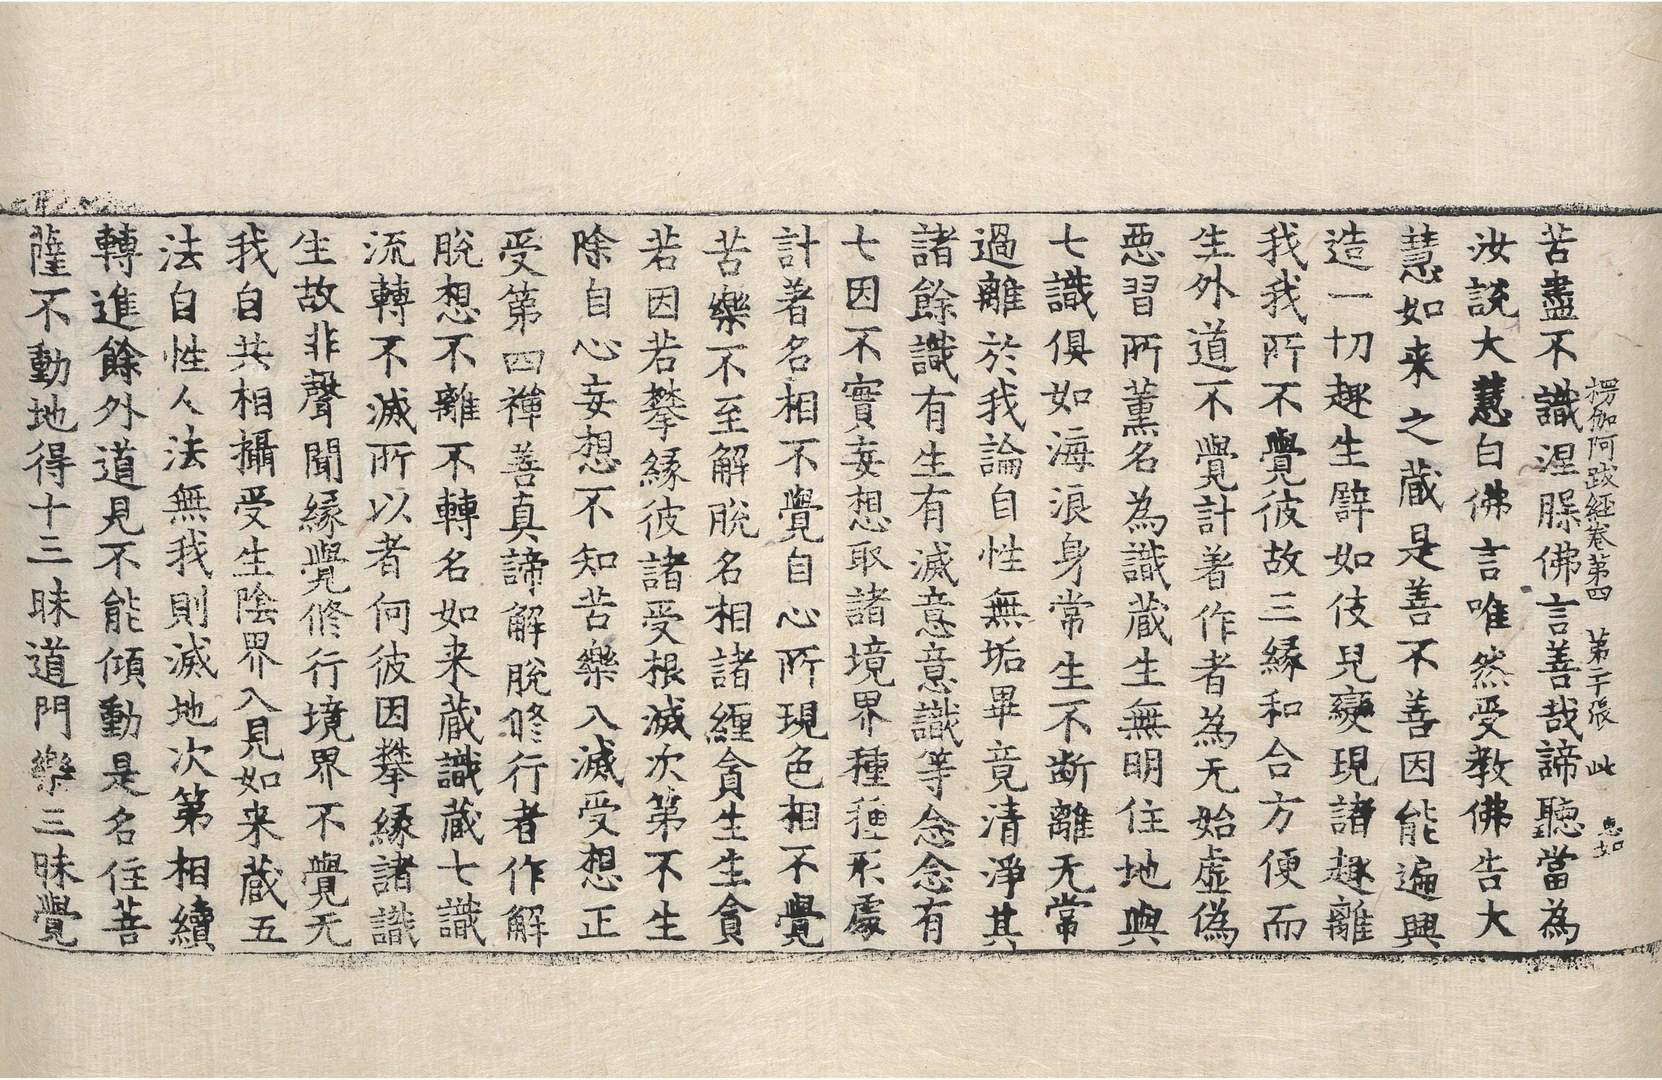 楞伽阿跋経卷第四 第千張 此 惠如
苦盡不識涅槃佛言善哉諦聽當為
汝說大慧白佛言唯然受教佛告大
慧如来之蔵是善不善因能遍興
造一切趣生譬如伎兒變現諸趣離
我我所不覺彼故三縁和合方便而
生外道不覺計著作者為无始虚偽
惡習所薰名為識蔵生無明住地與
七識俱如海浪身常生不断離无常
過離於我論自性無垢畢竟清淨其
諸餘識有生有滅意意識等念念有
七因不實妄想取諸境界種種形處
計著名相不覺自心所現色相不覺
苦樂不至解脫名相諸纏貪生生貪
若因若攀縁彼諸受根滅次第不生
除自心妄想不知苦樂入滅受想正
受第四禪善真諦解脫修行者作解
脫想不離不轉名如来蔵識蔵七識
流轉不滅所以者何彼因攀縁諸識
生故非聲聞縁覺修行境界不覺无
我自共相攝受生陰界入見如来蔵五
法自性人法無我則滅地次第相續
轉進餘外道見不能傾動是名住菩
薩不動地得十三昧道門樂三昧覺